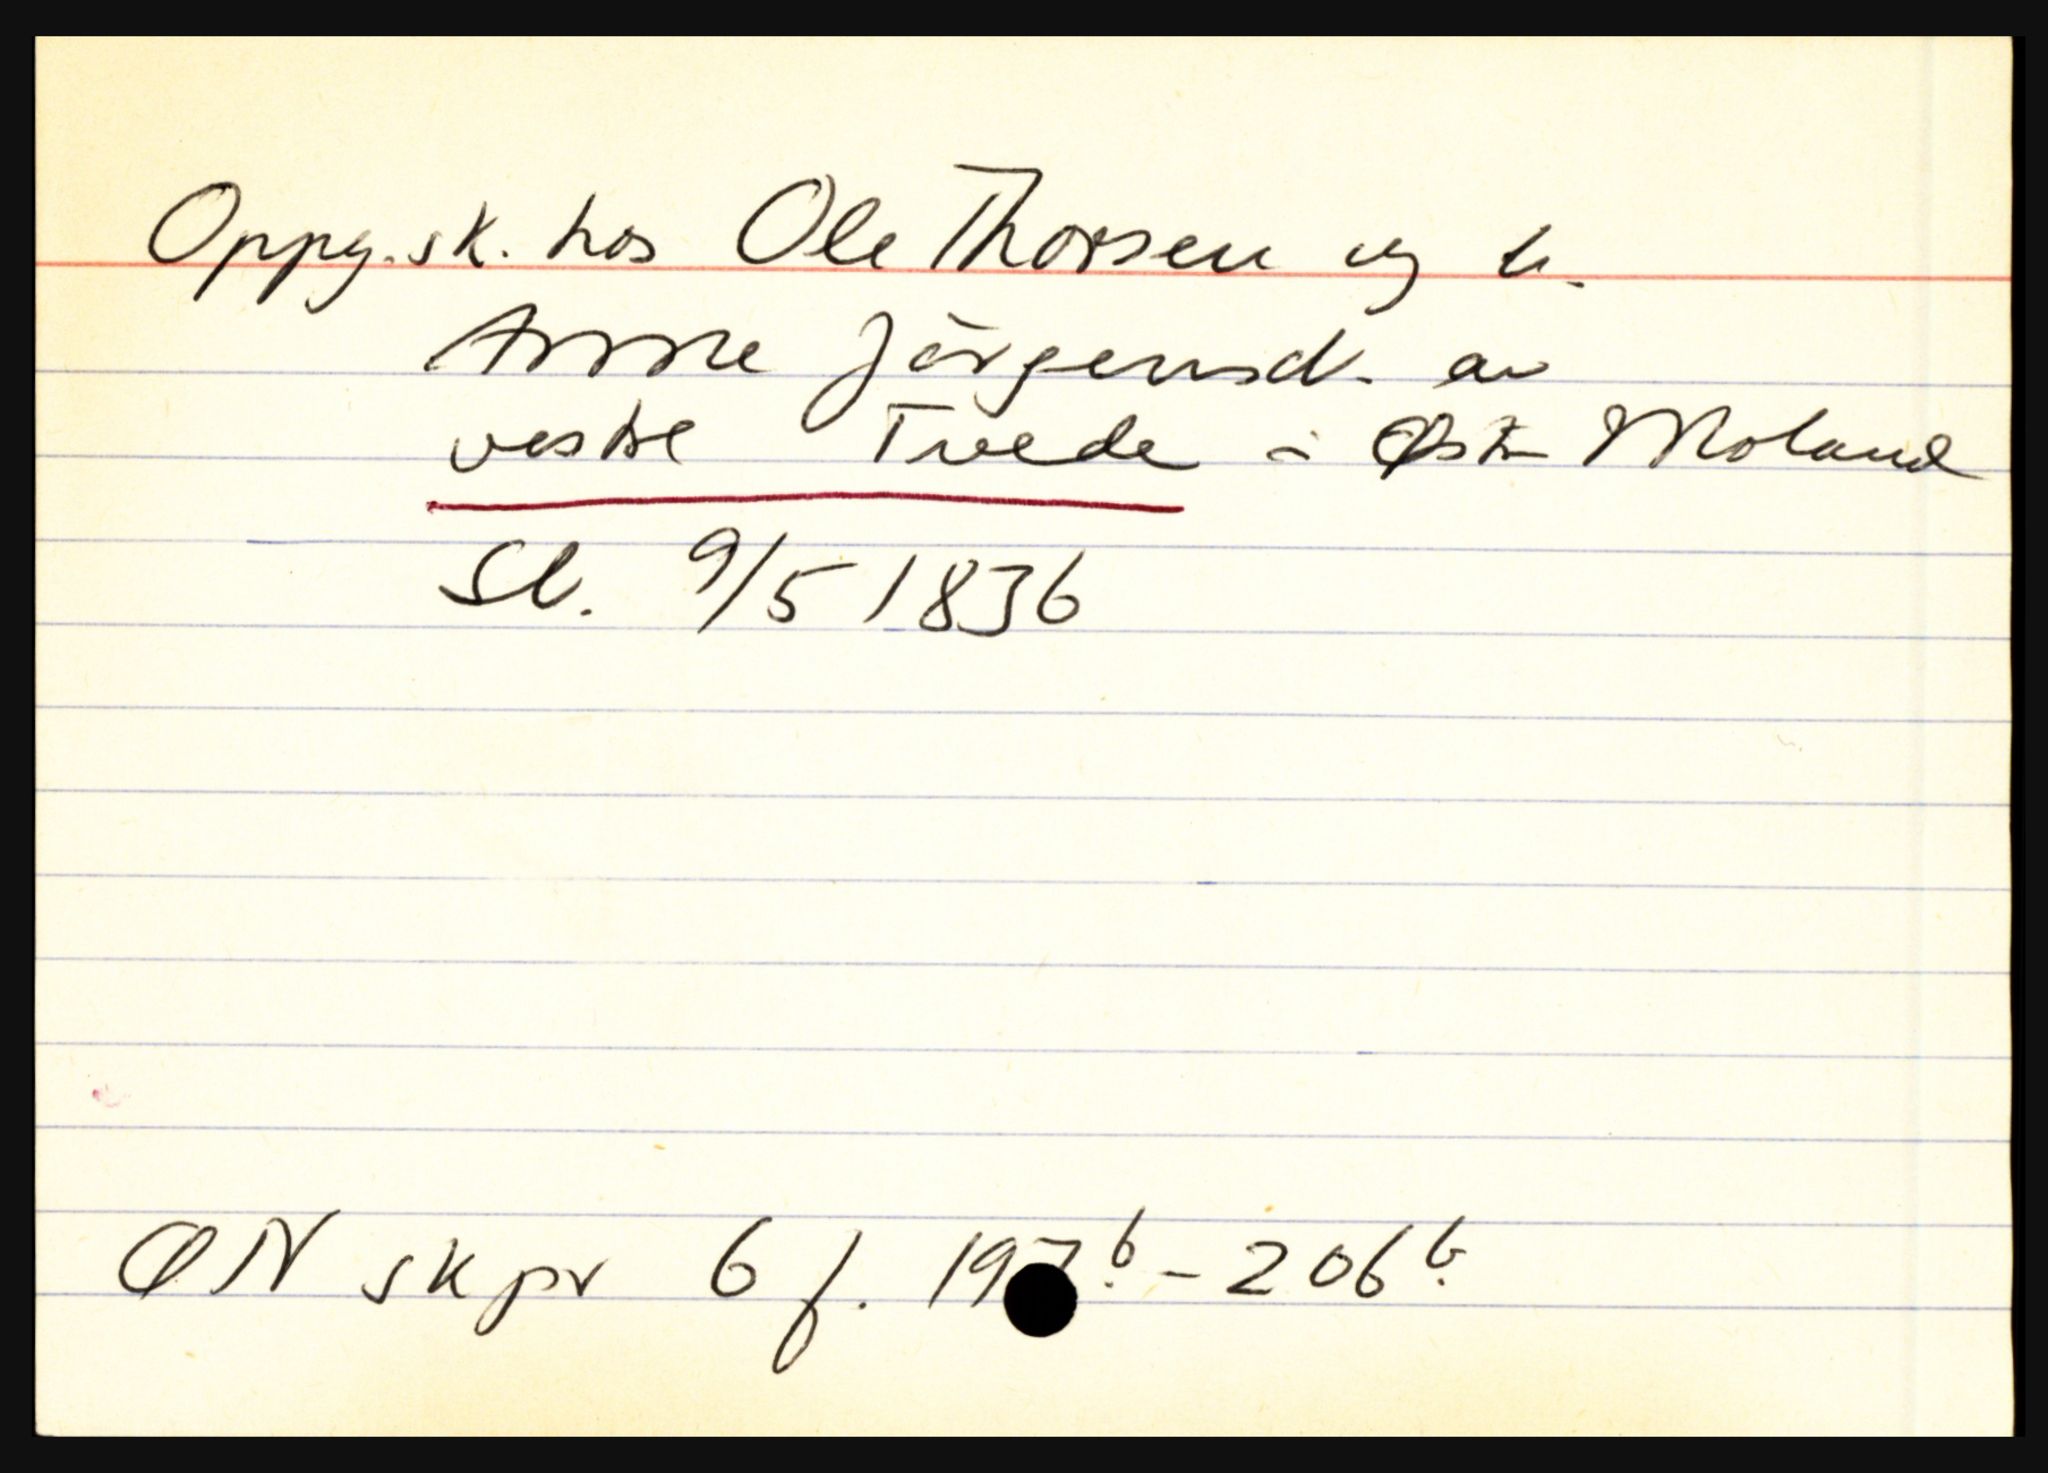 Oppg.sk. hos Ole Thorsen og h.
Anne Jörgensd. av
vestre Tvede i Østre Moland
Sl. 9/5 1836
ØN skpr 6 f. 197b. - 206b.